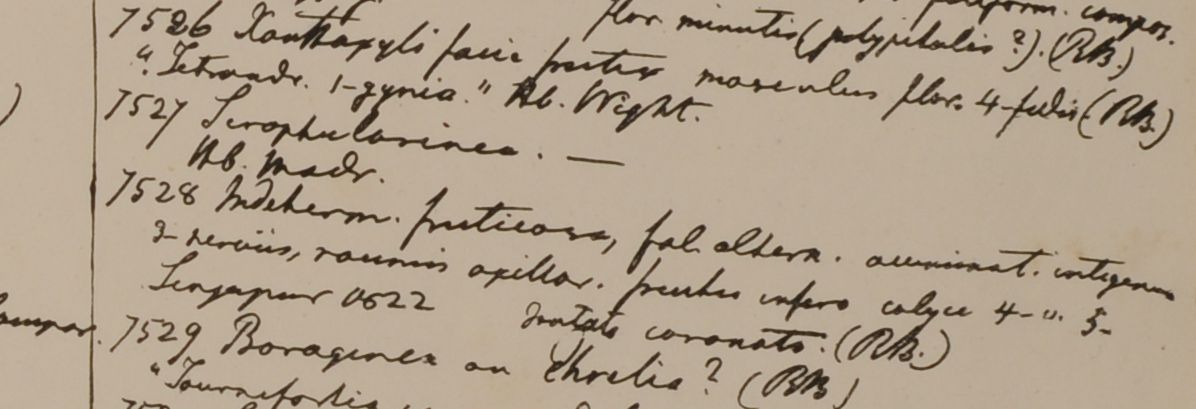 flor. minutis (polypetalis?). (RB.)
7526 Xanthoxyli facie frutex masculus flor. 4-fidis (RB.)
"Tetrandr. 1-gynia." Hb. Wight.
7527 Scrophularinea. —
Hb. Madr.
7528 Indeterm. fruticosa, fol. altern. acuminat. integerr
3-nerviis, racemis axillar. fructu infero calyce 4- v. 5-
Singapur 1822 dentato coronato. (RB.)
7529 Boraginea an Ehretia? (RB)
"Tournefortia